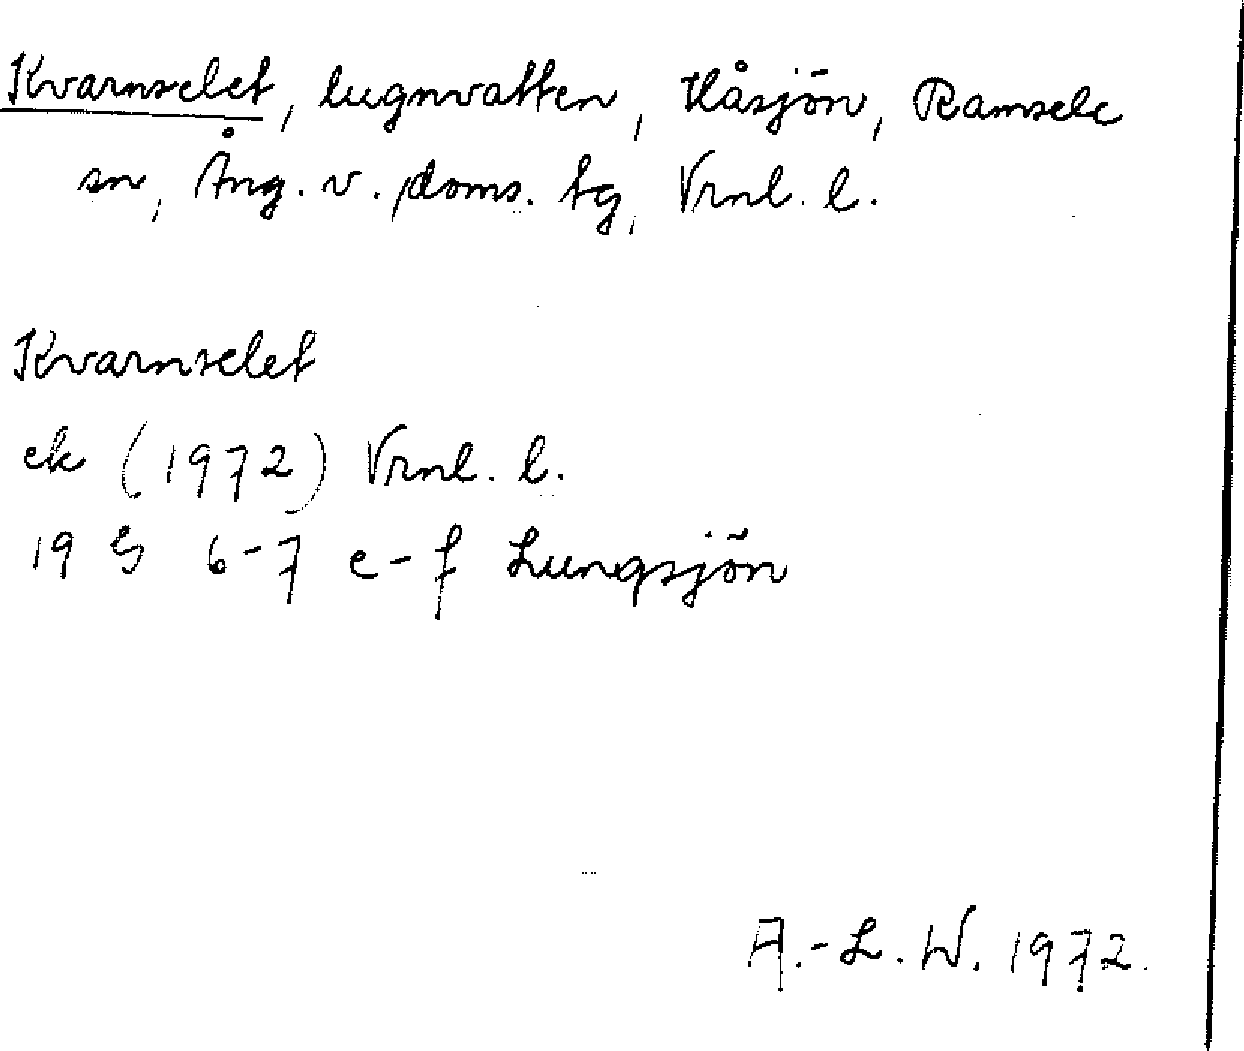 Kvarnselet, lugnvatten, Håsjön, Ramsele
sn, Ång. v. doms. tg, Vrnl. l.
Kvarnselet
ek (1972) Vrnl. l.
19 G 6-7 e-f Lungsjön
A.-L. W. 1972.